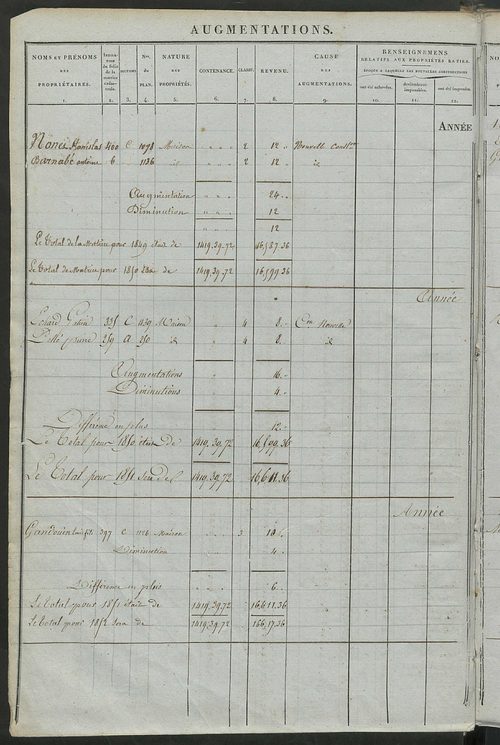 AUGMENTATIONS.
NOMS ET PRÉNOMS DES PROPRIÉTAIRES. 1.
2.
SECTIONS 3.
Nos. du PLAN. 4.
NATURE DES PROPRIÉTÉS. 5.
CONTENANCE. 6.
CLASSE. 7.
REVENU. 8.
CAUSE DES AUGMENTATIONS. 9.
RENSEIGNEMENS RELATIFS AUX PROPRIÉTÉS BATIES.
ÉPOQUE A LAQUELLE LES NOUVELLES CONSTRUCTIONS
ont été achevées. 10.
deviendront imposables. 11.
ont été imposées. 12.
ANNÉE
Stanislas 400 C 1078 Maison 2 12 Nouvelle Const.on
Barnabé 6 1136 id 2 12 id
Augmentation 24
Diminution 12
12
Le Total de la Matrice pour 1849 était de 1419,39,72 16,587.36
Le Total de Matrice pour 1850 Sera de 1419.39.72 16,599 36
Année
C 1039 Maison 4 8 Con Nouvelle
259 A 250 id 4 8 id
Augmentations 16
Diminutions 4
Différence en plus 12
Le Total pour 1850 était de 1419,39,72 16,599,36
Le Total pour 1851 Sera de 1419.39.72 16,611.36
Année
397 C Maison 3 10
Diminution 4
Différence en plus 6
Le total pour 1851 était de 1419,39,72 16,611.36
Le total pour 1852 sera de 1419.39.72 16617.36